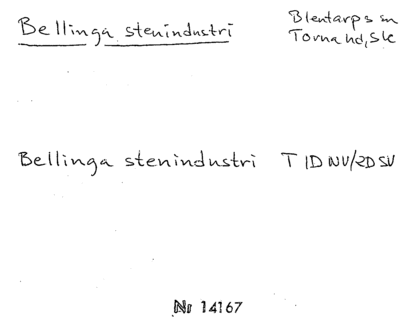 Bellinga stenindustri
Blentarps sn
Torna hd, Sk
Bellinga stenindustri T 1D NV/2D SV
Nr 14167